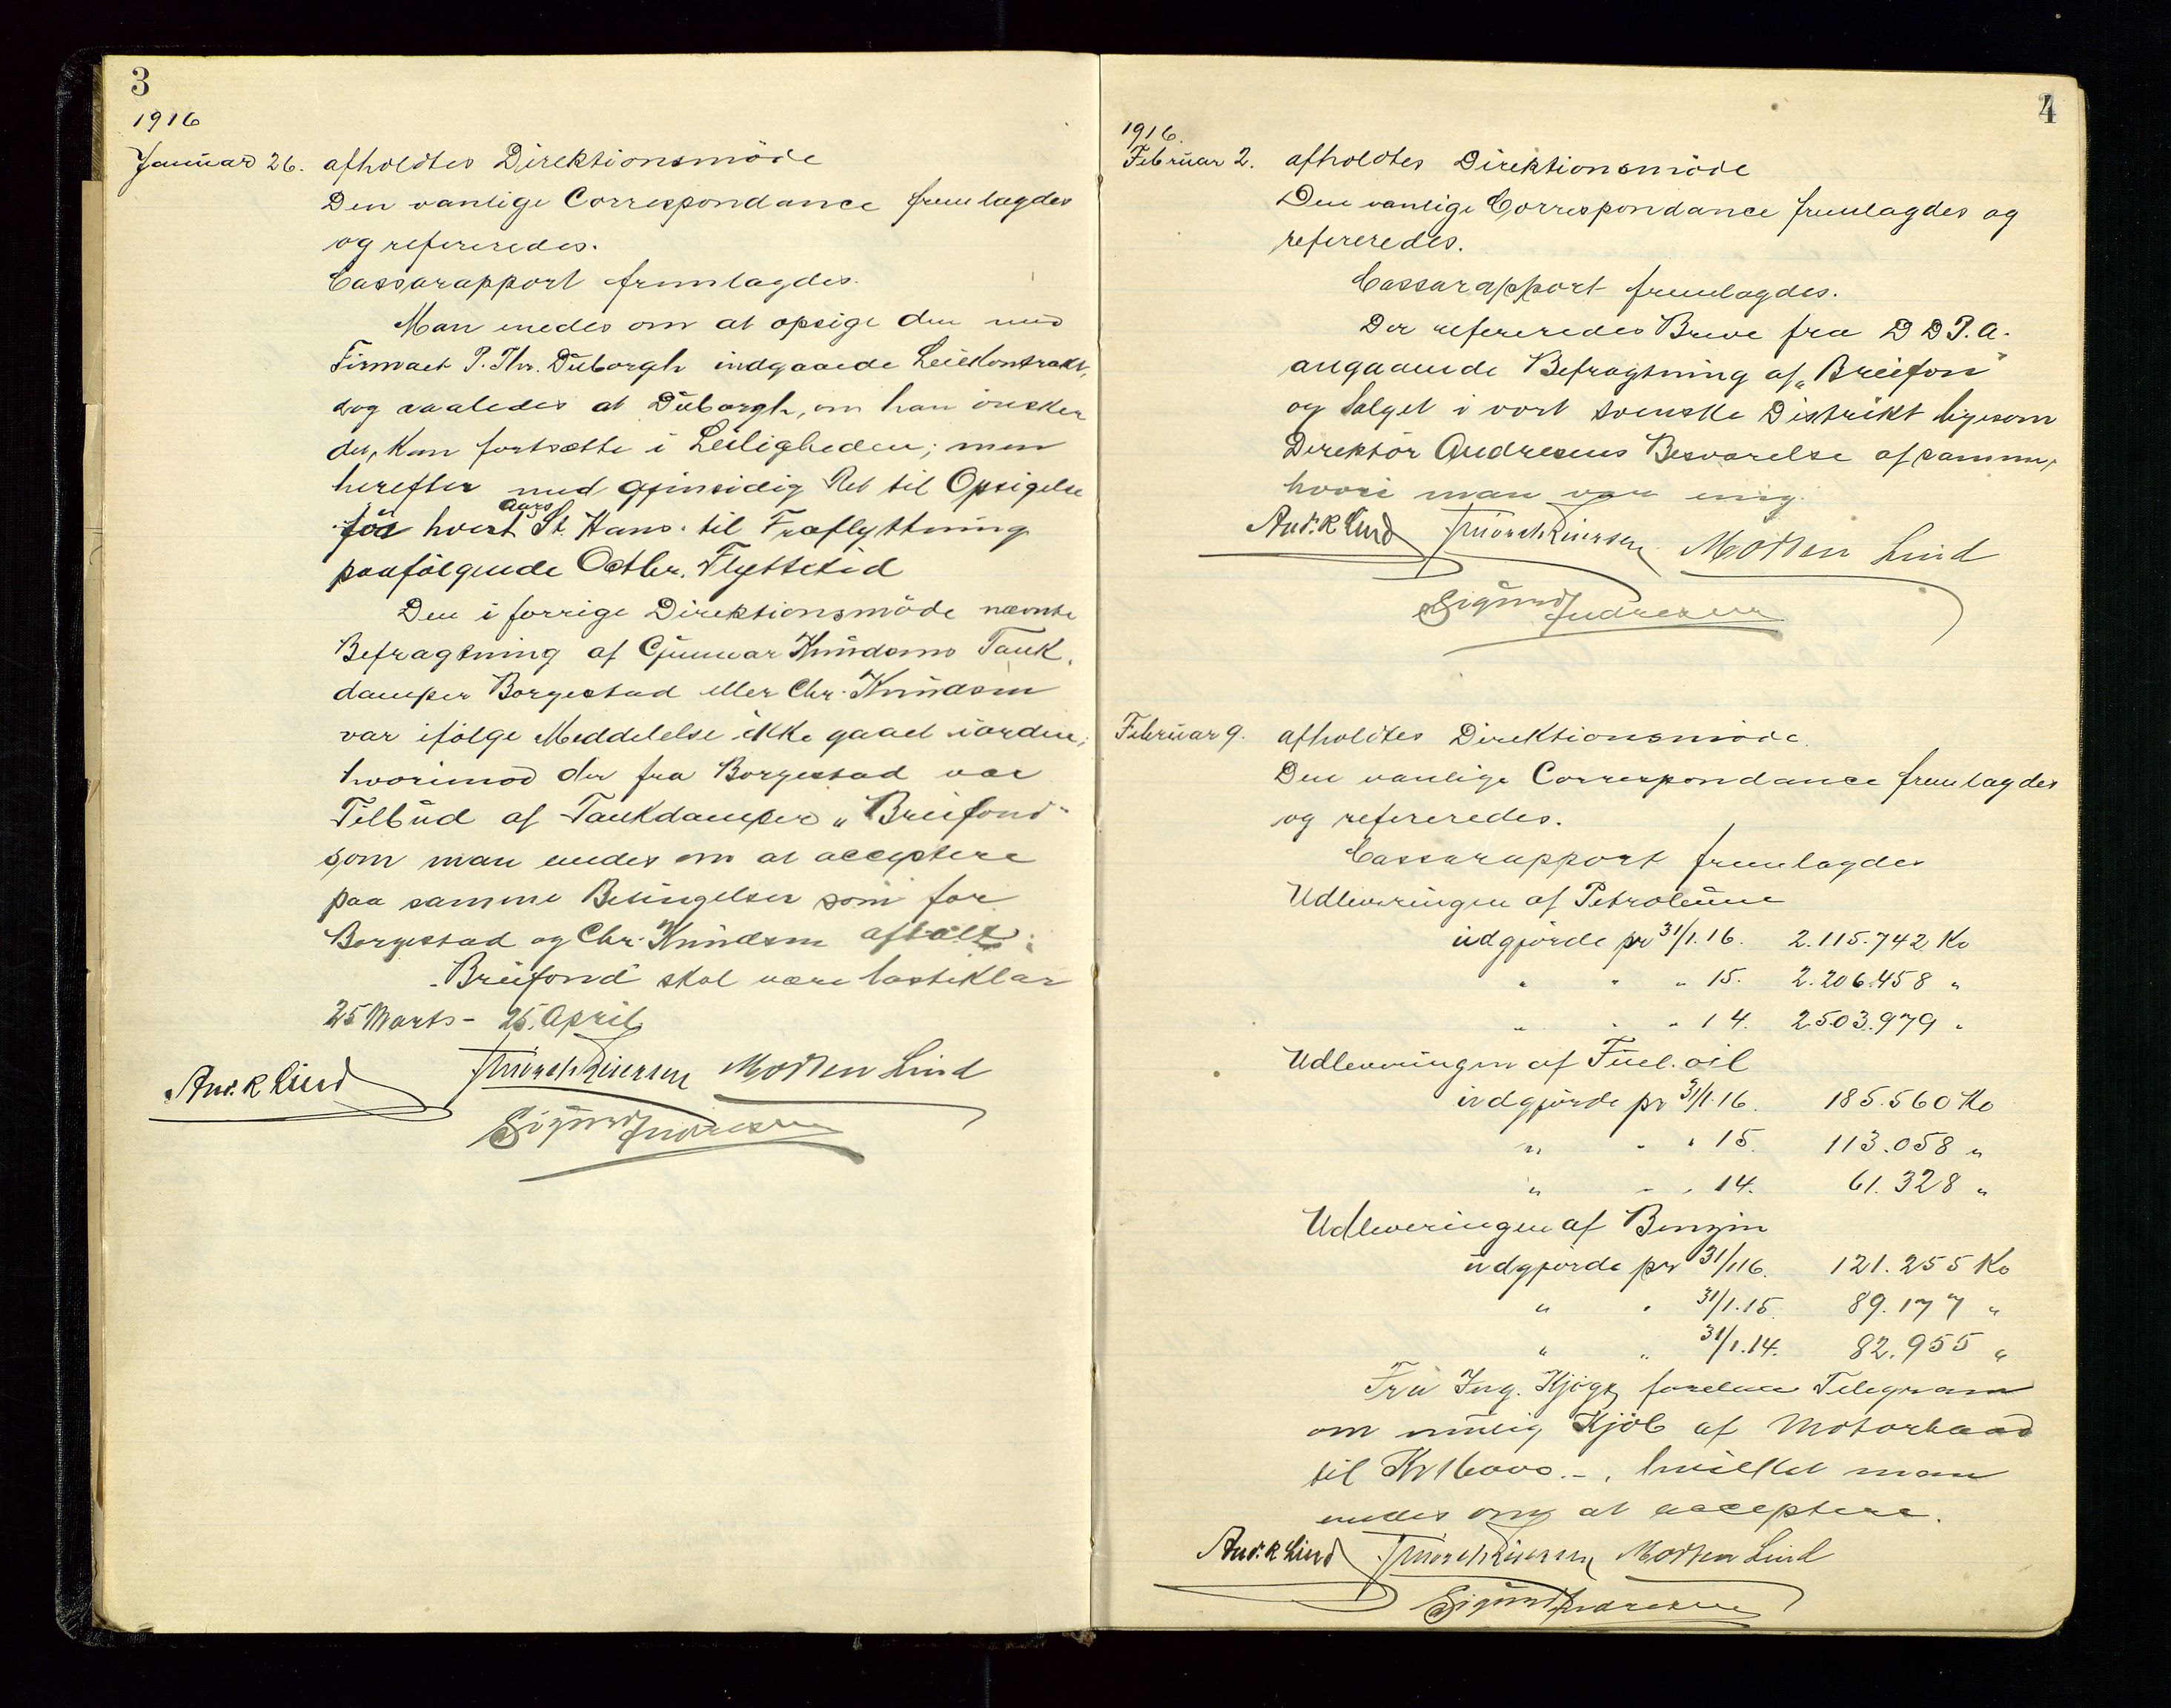 3
1916
Januar 26. afholdtes Direktionsmöde
Den vanlige Correspondance fremlagdes
og refereredes.
Cassarapport fremlagdes.
Man enedes om at opsige den med
Firmaet P. Thr. Duborgh indgaaede Leiekontrakt,
dog saaledes at Duborgh, om han önsker
det, kan fortsætte i Leiligheden; men
herefter med gjensidig Ret til Opsigelse
för hvert Aars St. Hans til Fraflyttning
paafölgende Octbr. Flyttetid
Den i forrige Direktionsmöde nævnte
Befragtning af Gunnar Knudsens Tank.
damper Borgestad eller Chr. Knudsen
var ifölge Meddelelse ikke gaaet iorden;
hvorimod der fra Borgestad var
Tilbud af Tankdamper „Breifond"
som man enedes om at acceptere
paa samme Betingelser som for
Borgestad og Chr. Knudsen aftalt.
Breifond skal være lasteklar
25 Marts - 25. April
And. R Lind Mörch Reiersen Morten Lind
Sigurd Andresen
4
1916.
Februar 2. afholdtes Direktionsmöde
Den vanlige Correspondance fremlagdes og
refereredes.
Cassarapport fremlagdes.
Der refereredes Breve fra D D P. A.
angaaende Befragtning af „Breifon"
og Salget i vort svenske Distrikt ligesom
Direktör Andresens Besvarelse af samme,
hvori man var enig.
And. R Lind Mörch Reiersen Morten Lind
Sigurd Andresen
Februar 9. afholdtes Direktionsmöde.
Den vanlige Correspondance fremlagdes
og refereredes.
Cassarapport fremlagdes
Udleveringen af Petroleum
udgjorde pr 31/1.16. 2.115.742 Ko
" " " 15. 2.206.458 "
" " " 14. 2503.979 "
Udleveringen af Fuel. oil
udgjorde pr 31/1.16. 185.560 Ko
" " " 15. 113.058 "
" " " 14. 61.328 "
Udleveringen af Benzin
udgjorde pr 31/1 16. 121.255 Ko
" " 31/1.15. 89.177 "
" " 31/1.14. 82.955 "
Fra Ing. forelaa Telegram
om mulig Kjöb af Motorbaad
til Kr 16000.-, hvilket man
enedes om at acceptere.
And. R Lind Mörch Reiersen Morten Lind
Sigurd Andresen